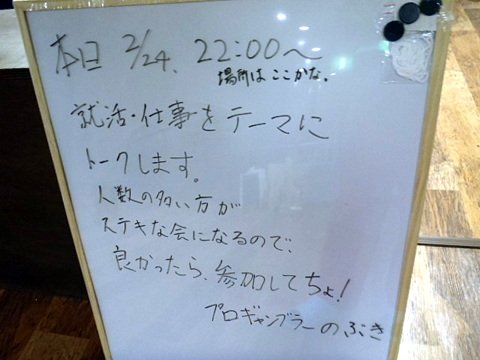 本日 2/24、22:00〜
場所はここかな。
就活・仕事をテーマに
トークします。
人数の多い方が
ステキな会になるので、
良かったら、参加してちょ!
プロギャンブラーのぶき